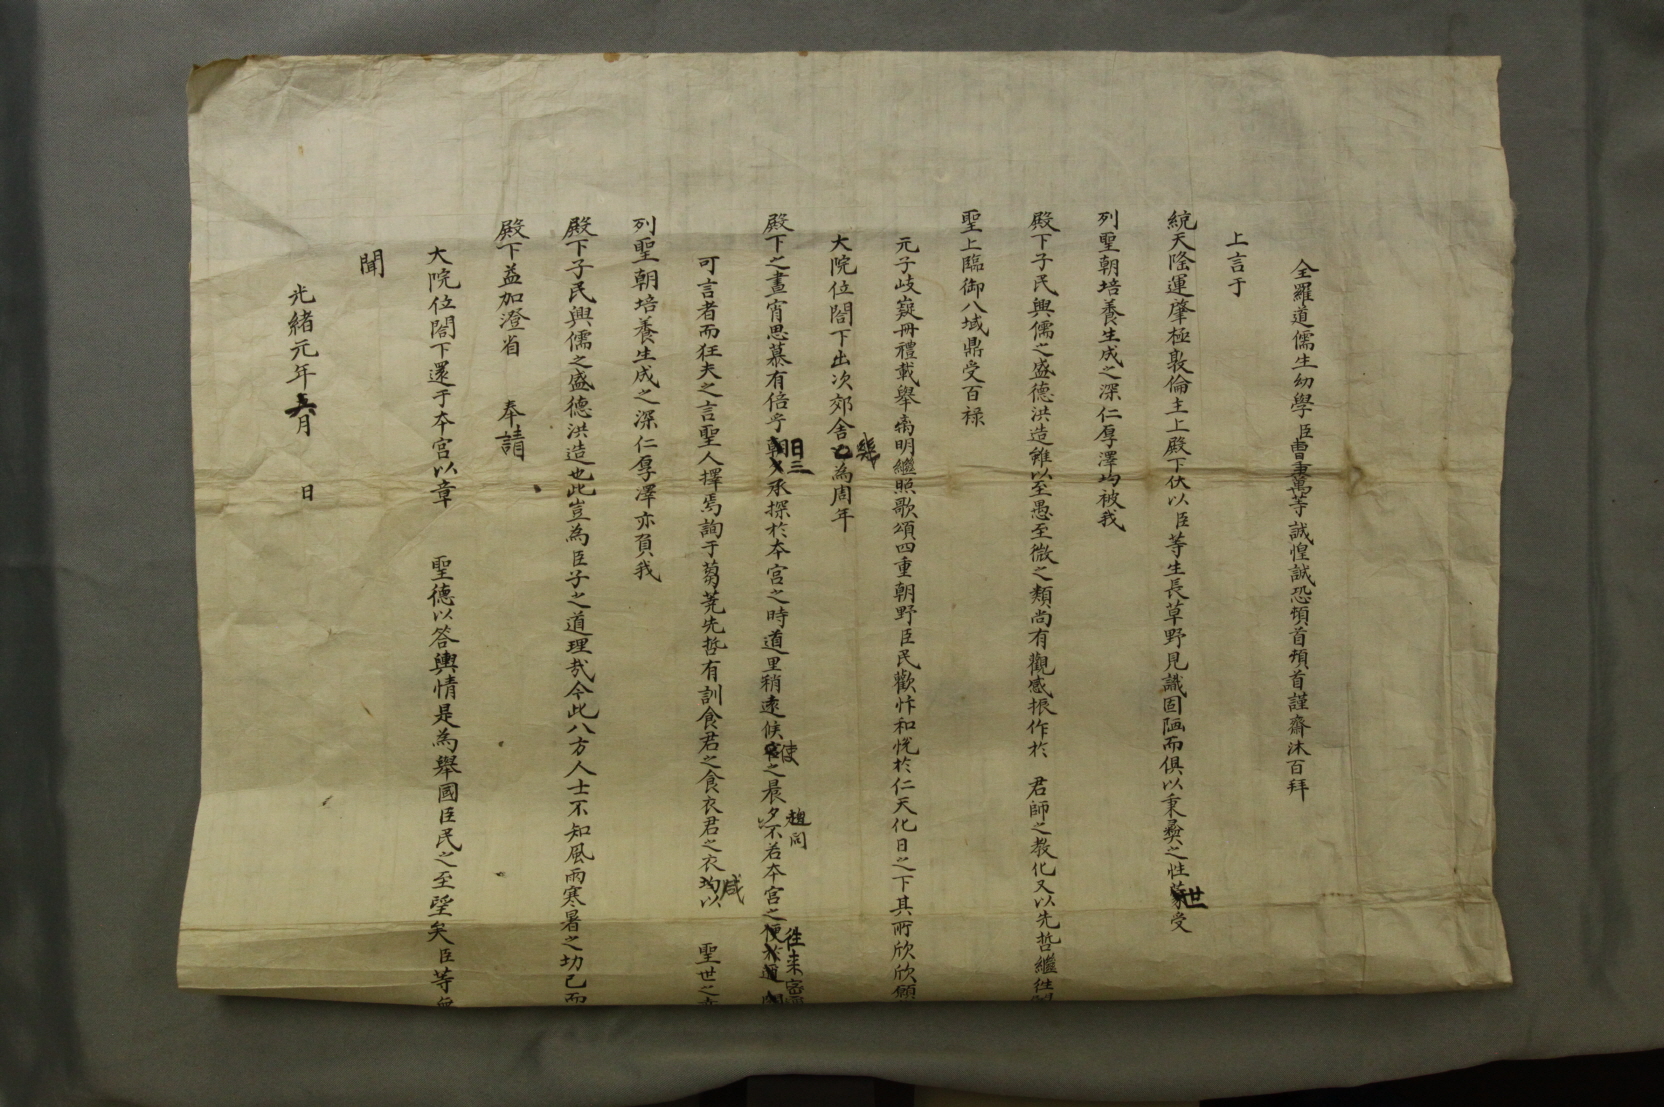 全羅道儒生幼學臣曺秉萬等誠惶誠恐頓首頓首謹齋沐百拜
上言于
統天隆運肇極敦倫主上殿下伏以臣等生長草野見識固陋而俱以秉彜之性世受
列聖朝培養生成之深仁厚澤均被我
殿下子民興儒之盛德洪造雖以至愚至微之類尚有觀感振作於 君師之敎化又以先哲繼徃
聖上臨御八域鼎受百祿
元子岐嶷冊禮載舉离明繼照歌頌四重朝野臣民歡忭和悅於仁天化日之下其所欣欣願
大院位閤下出次郊舍幾為周年
殿下之晝宵思慕有倍乎日三承探於本宮之時道里稍遠候使之晨夕趨問不若本宮之徃来
可言者而狂夫之言聖人擇焉詢于蒭蕘先哲有訓食君之食衣君之衣咸以 聖世之
列聖朝培養生成之深仁厚澤亦負我
殿下子民興儒之盛德洪造也此豈為臣子之道理㢤今此八方人士不知風雨寒暑之切己而
殿下益加澄省 奉請
大院位閤下還于本宮以章 聖德以答輿情是為舉國臣民之至望矣臣等無
聞
光緒元年 月 日